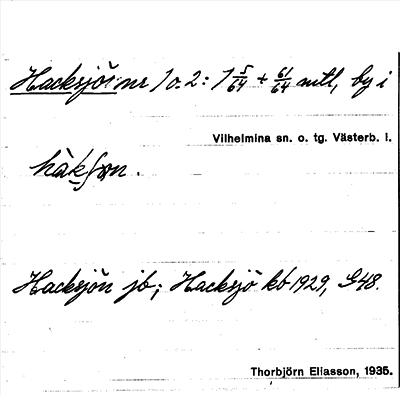 Hacksjö: nr 1 o. 2: 1 5/64 + 61/64 mtl, by i
Vilhelmina sn. o. tg. Västerb. l.
Hacksjön jb; Hacksjö kb 1929, G48.
Thorbjörn Eliasson, 1935.